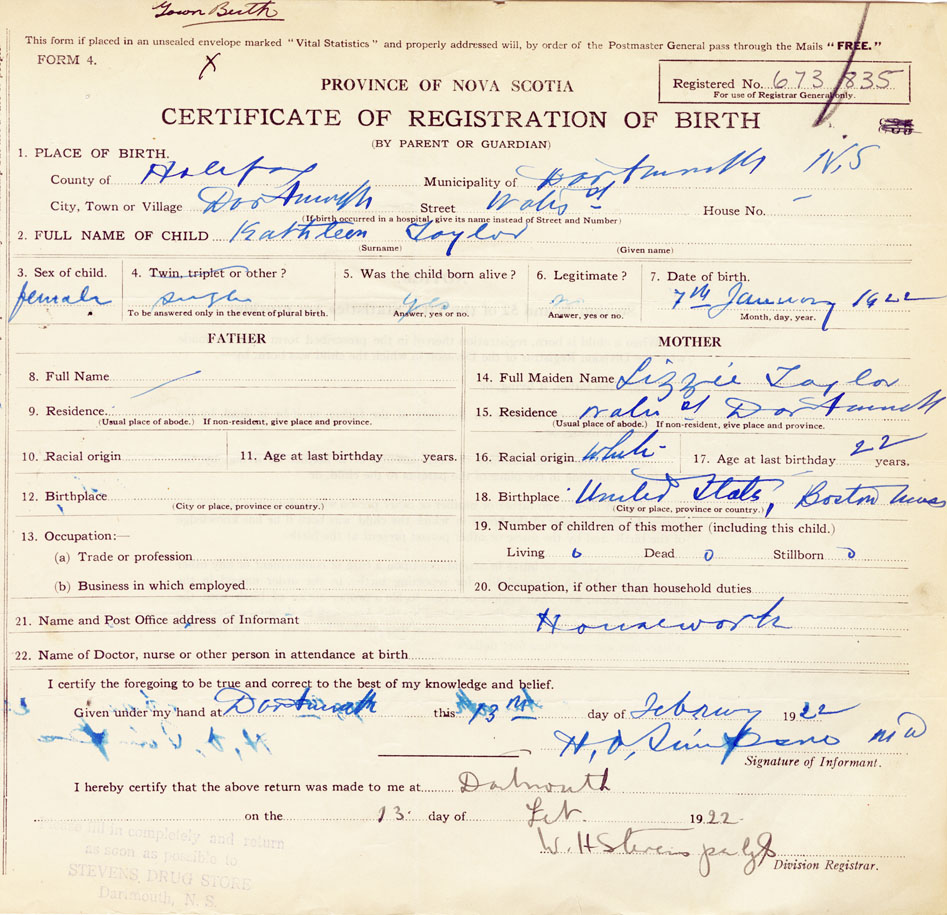 Town Birth
This form if placed in an unsealed envelope marked "Vital Statistics" and properly addressed will, by order of the Postmaster General pass through the Mails "FREE."
FORM 4.
X
PROVINCE OF NOVA SCOTIA
Registered No. 673 835
For use of Registrar General only.
CERTIFICATE OF REGISTRATION OF BIRTH
(BY PARENT OR GUARDIAN)
1. PLACE OF BIRTH.
County of Halifax Municipality of Dartmouth N.S
City, Town or Village Dartmouth Street St House No. -
(If birth occurred in a hospital, give its name instead of Street and Number)
2. FULL NAME OF CHILD Kathleen Taylor
(Surname) (Given name)
3. Sex of child. 4. Twin, triplet or other? 5. Was the child born alive? 6. Legitimate? 7. Date of birth.
female single yes no 7th January 1922
To be answered only in the event of plural birth. Answer, yes or no. Answer, yes or no. Month, day, year.
FATHER MOTHER
8. Full Name 14. Full Maiden Name Lizzie Taylor
9. Residence. 15. Residence St Dartmouth
(Usual place of abode.) If non-resident, give place and province. (Usual place of abode.) If non-resident, give place and province.
10. Racial origin 11. Age at last birthday years. 16. Racial origin White 17. Age at last birthday 22 years.
12. Birthplace 18. Birthplace United States, Boston Mass
(City or place, province or country.) (City or place, province or country.)
13. Occupation:— 19. Number of children of this mother (including this child.)
(a) Trade or profession Living Dead 0 Stillborn 0
(b) Business in which employed 20. Occupation, if other than household duties
21. Name and Post Office address of Informant Housework
22. Name of Doctor, nurse or other person in attendance at birth
I certify the foregoing to be true and correct to the best of my knowledge and belief.
Given under my hand at Dartmouth this 13th day of February 1922
H. O. Simpson MD
Signature of Informant.
I hereby certify that the above return was made to me at Dartmouth
on the 13 day of Feb. 1922
W. H Stevens
Division Registrar.
Please fill in completely and return
as soon as possible to
STEVENS DRUG STORE
Dartmouth, N. S.